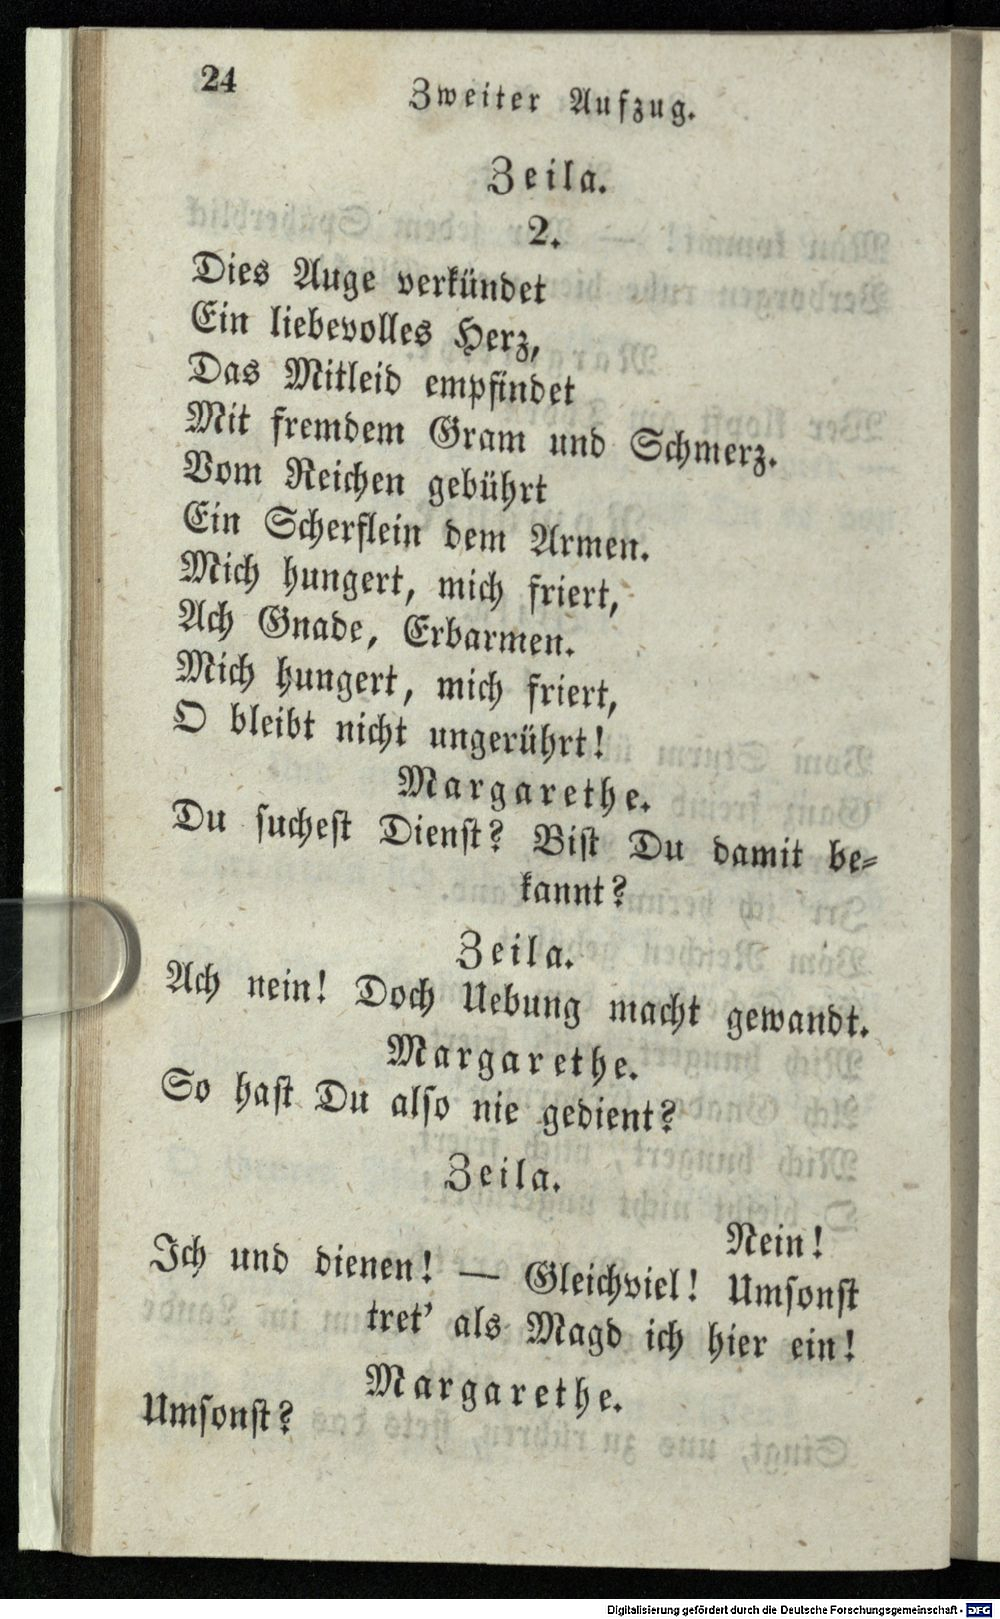 24
Zweiter Aufzug.
Zeila.
2.
Dies Auge verkündet
Ein liebevolles Herz,
Das Mitleid empfindet
Mit fremdem Gram und Schmerz.
Vom Reichen gebührt
Ein Scherflein dem Armen.
Mich hungert, mich friert,
Ach Gnade, Erbarmen.
Mich hungert, mich friert,
O bleibt nicht ungerührt!
Margarethe.
Du suchest Dienst? Bist Du damit be-
kannt?
Zeila.
Ach nein! Doch Uebung macht gewandt.
Margarethe.
So hast Du also nie gedient?
Zeila.
Nein!
Ich und dienen! — Gleichviel! Umsonst
tret' als Magd ich hier ein!
Margarethe.
Umsonst?
Digitalisierung gefördert durch die Deutsche Forschungsgemeinschaft - DFG